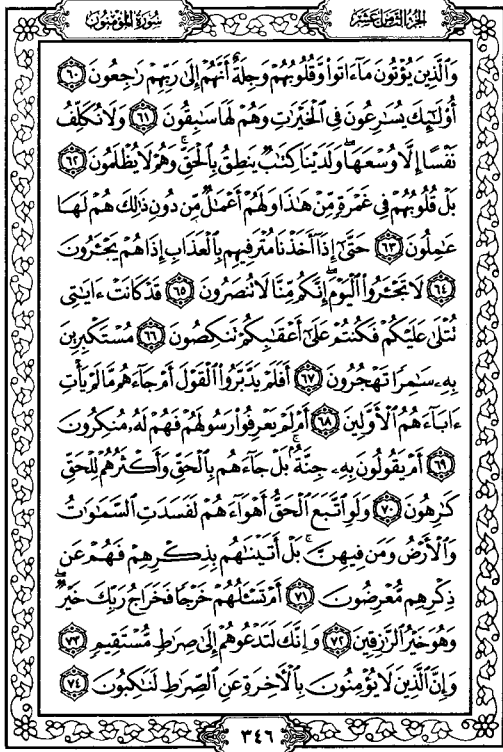 سُورَةُ المُؤْمِنُونَ الجُزْءُ الثَّامِنَ عَشَرَ
وَٱلَّذِينَ يُؤْتُونَ مَآ ءَاتَوا۟ وَّقُلُوبُهُمْ وَجِلَةٌ أَنَّهُمْ إِلَىٰ رَبِّهِمْ رَٰجِعُونَ ٦٠
أُو۟لَٰٓئِكَ يُسَٰرِعُونَ فِى ٱلْخَيْرَٰتِ وَهُمْ لَهَا سَٰبِقُونَ ٦١ وَلَا نُكَلِّفُ
نَفْسًا إِلَّا وُسْعَهَا ۖ وَلَدَيْنَا كِتَٰبٌ يَنطِقُ بِٱلْحَقِّ ۚ وَهُمْ لَا يُظْلَمُونَ ٦٢
بَلْ قُلُوبُهُمْ فِى غَمْرَةٍ مِّنْ هَٰذَا وَلَهُمْ أَعْمَٰلٌ مِّن دُونِ ذَٰلِكَ هُمْ لَهَا
عَٰمِلُونَ ٦٣ حَتَّىٰٓ إِذَآ أَخَذْنَا مُتْرَفِيهِم بِٱلْعَذَابِ إِذَا هُمْ يَجْـَٔرُونَ
٦٤ لَا تَجْـَٔرُوا۟ ٱلْيَوْمَ ۖ إِنَّكُم مِّنَّا لَا تُنصَرُونَ ٦٥ قَدْ كَانَتْ ءَايَٰتِى
تُتْلَىٰ عَلَيْكُمْ فَكُنتُمْ عَلَىٰٓ أَعْقَٰبِكُمْ تَنكِصُونَ ٦٦ مُسْتَكْبِرِينَ
بِهِۦ سَٰمِرًا تَهْجُرُونَ ٦٧ أَفَلَمْ يَدَّبَّرُوا۟ ٱلْقَوْلَ أَمْ جَآءَهُم مَّا لَمْ يَأْتِ
ءَابَآءَهُمُ ٱلْأَوَّلِينَ ٦٨ أَمْ لَمْ يَعْرِفُوا۟ رَسُولَهُمْ فَهُمْ لَهُۥ مُنكِرُونَ
٦٩ أَمْ يَقُولُونَ بِهِۦ جِنَّةٌۢ ۚ بَلْ جَآءَهُم بِٱلْحَقِّ وَأَكْثَرُهُمْ لِلْحَقِّ
كَٰرِهُونَ ٧٠ وَلَوِ ٱتَّبَعَ ٱلْحَقُّ أَهْوَآءَهُمْ لَفَسَدَتِ ٱلسَّمَٰوَٰتُ
وَٱلْأَرْضُ وَمَن فِيهِنَّ ۚ بَلْ أَتَيْنَٰهُم بِذِكْرِهِمْ فَهُمْ عَن
ذِكْرِهِم مُّعْرِضُونَ ٧١ أَمْ تَسْـَٔلُهُمْ خَرْجًا فَخَرَاجُ رَبِّكَ خَيْرٌ ۖ
وَهُوَ خَيْرُ ٱلرَّٰزِقِينَ ٧٢ وَإِنَّكَ لَتَدْعُوهُمْ إِلَىٰ صِرَٰطٍ مُّسْتَقِيمٍ ٧٣
وَإِنَّ ٱلَّذِينَ لَا يُؤْمِنُونَ بِٱلْأَخِرَةِ عَنِ ٱلصِّرَٰطِ لَنَٰكِبُونَ ٧٤
٣٤٦